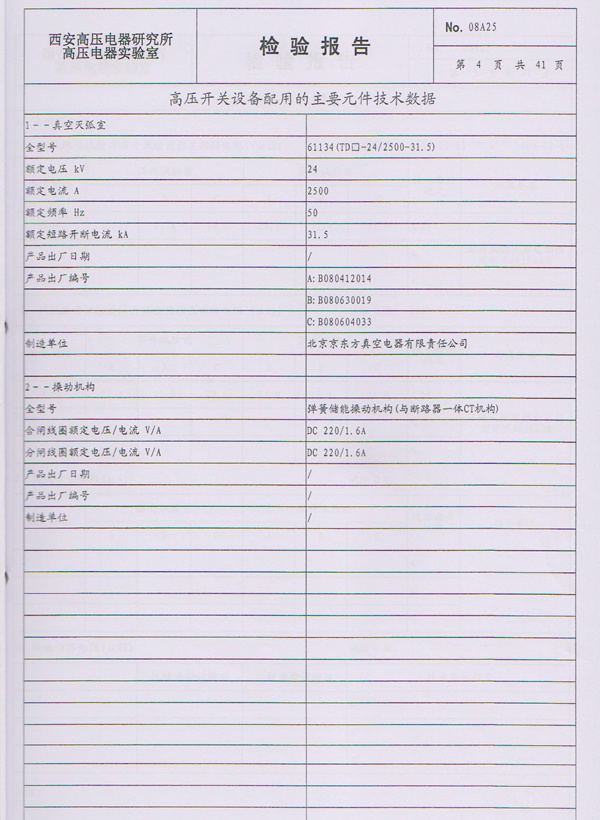 西安高压电器研究所
高压电器实验室
检验报告
No. 08A25
第 4 页 共 41 页
高压开关设备配用的主要元件技术数据
1--真空灭弧室
全型号 61134(TD□-24/2500-31.5)
额定电压 kV 24
额定电流 A 2500
额定频率 Hz 50
额定短路开断电流 kA 31.5
产品出厂日期 /
产品出厂编号 A:B080412014
B:B080630019
C:B080604033
制造单位 北京京东方真空电器有限责任公司
2--操动机构
全型号 弹簧储能操动机构(与断路器一体CT机构)
合闸线圈额定电压/电流 V/A DC 220/1.6A
分闸线圈额定电压/电流 V/A DC 220/1.6A
产品出厂日期 /
产品出厂编号 /
制造单位 /